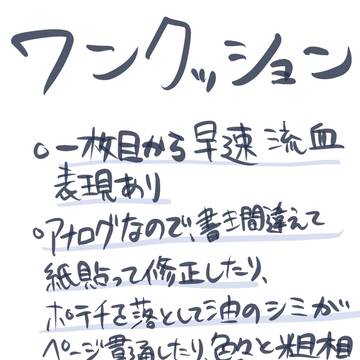 ワンクッション
○一枚目から早速流血
表現あり
○アナログなので、書き間違えて
紙貼って修正したり、
ポテチを落として油のシミが
ページ貫通したり色々と粗相